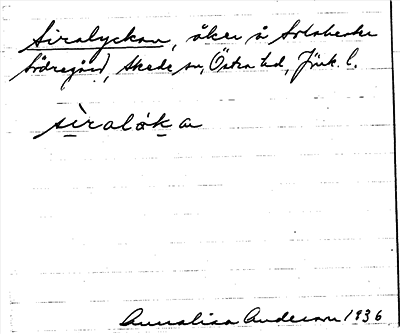 Siralyckan, åker å Solaberke
Södregård, Skede sn, Östra hd, Jönk. l.
siralok a
Annalisa Anderson 1936